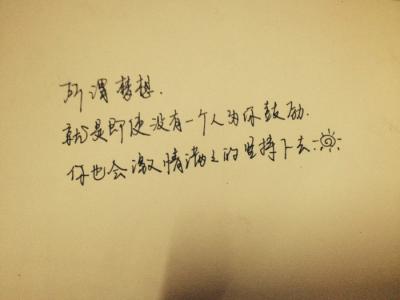 所谓梦想.
就是即使没有一个人为你鼓励.
你也会激情满之的坚持下去: